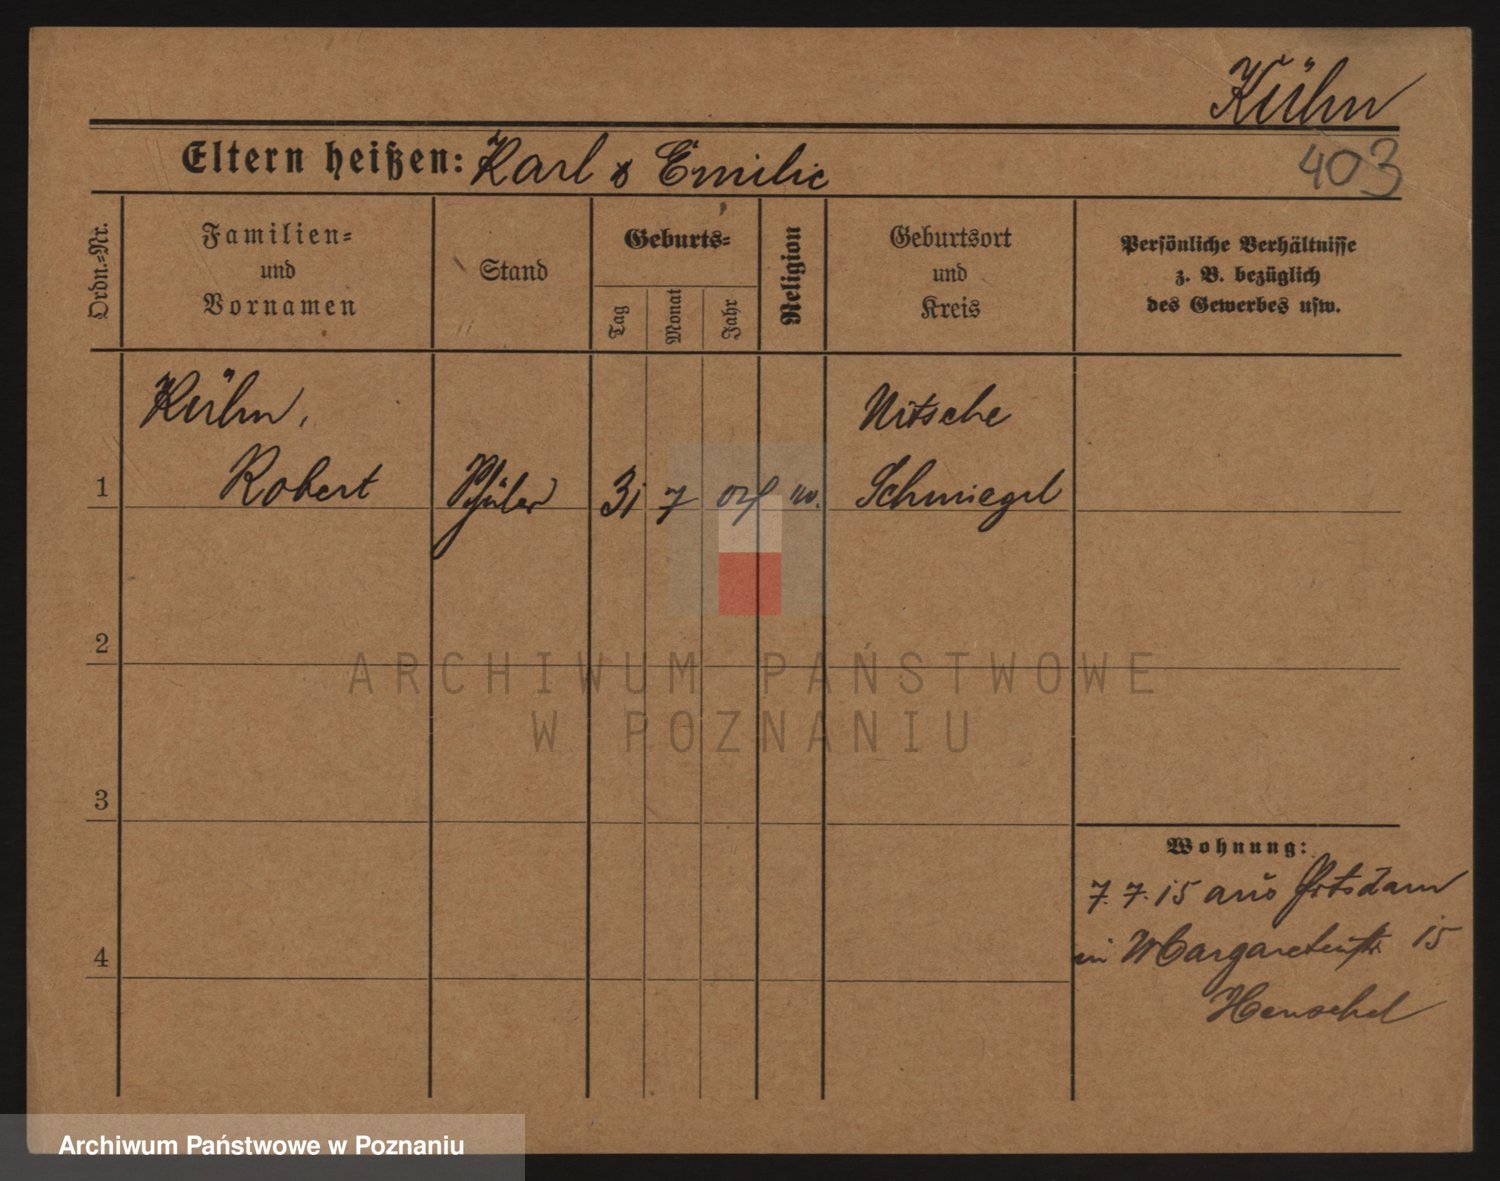 Kühn
Eltern heißen: Karl & Emilie
403
Ordn.-Nr.
Familien-
und
Vornamen
Stand
Geburts-
Tag
Monat
Jahr
Religion
Geburtsort
und
Kreis
Persönliche Verhältnisse
z. B. bezüglich
des Gewerbes usw.
Kühn,
Nitsche
1 Robert Schüler 31 7 04 ev. Schmiegel
2
ARCHIWUM PAŃSTWOWE
W POZNANIU
3
Wohnung:
7. 7. 15 aus Potsdam
4
in Margaretenstr. 15
Henschel
Archiwum Państwowe w Poznaniu